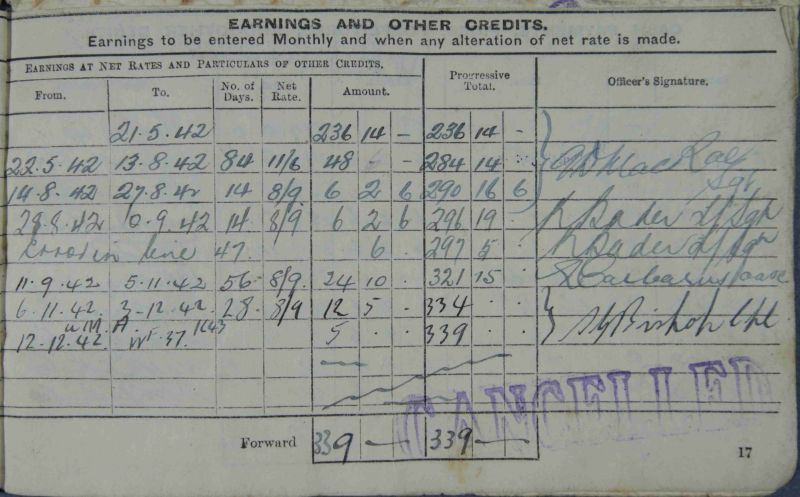 EARNINGS AND OTHER CREDITS.
Earnings to be entered Monthly and when any alteration of net rate is made.
EARNINGS AT NET RATES AND PARTICULARS OF OTHER CREDITS.
From. To. No. of Days. Net Rate. Amount. Progressive Total. Officer's Signature.
21.5.42 236 14 - 236 14 -
22.5.42 13.8.42 84 11/6 48 - - 284 14 -
14.8.42 27.8.42 14 8/9 6 2 6 290 16 6
Sgt
28.8.42 0.9.42 14 8/9 6 2 6 296 19 .
Error in line 47. 6 . 297 5 .
11.9.42 5.11.42 56. 8/9. 24 10 . 321 15 .
6.11.42. 3-12.42. 28. 8/9 12 5 . 334 . .
Bishop Cpl
12.12.42 WF.37. 5 . . 339 . .
Forward 339 - - 339 - -
CANCELLED
17